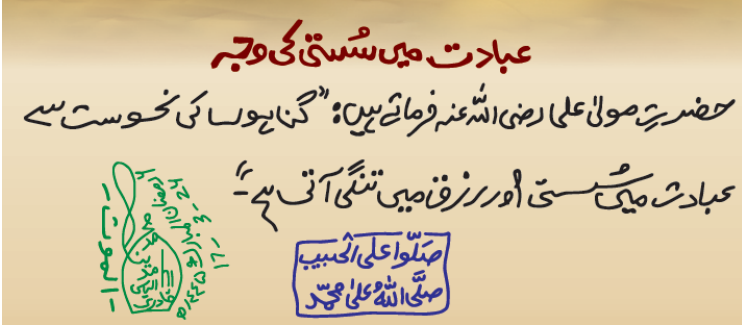 عبادت میں سُستی کی وجہ
حضرتِ مولیٰ علی رضی اللہ عنہ فرماتے ہیں: "گناہوں کی نحوست سے
عبادت میں سُستی اور رزق میں تنگی آتی ہے"۔
صَلُّوا عَلَی الْحَبِیب
صلَّی اللّٰہُ علیٰ محمّد